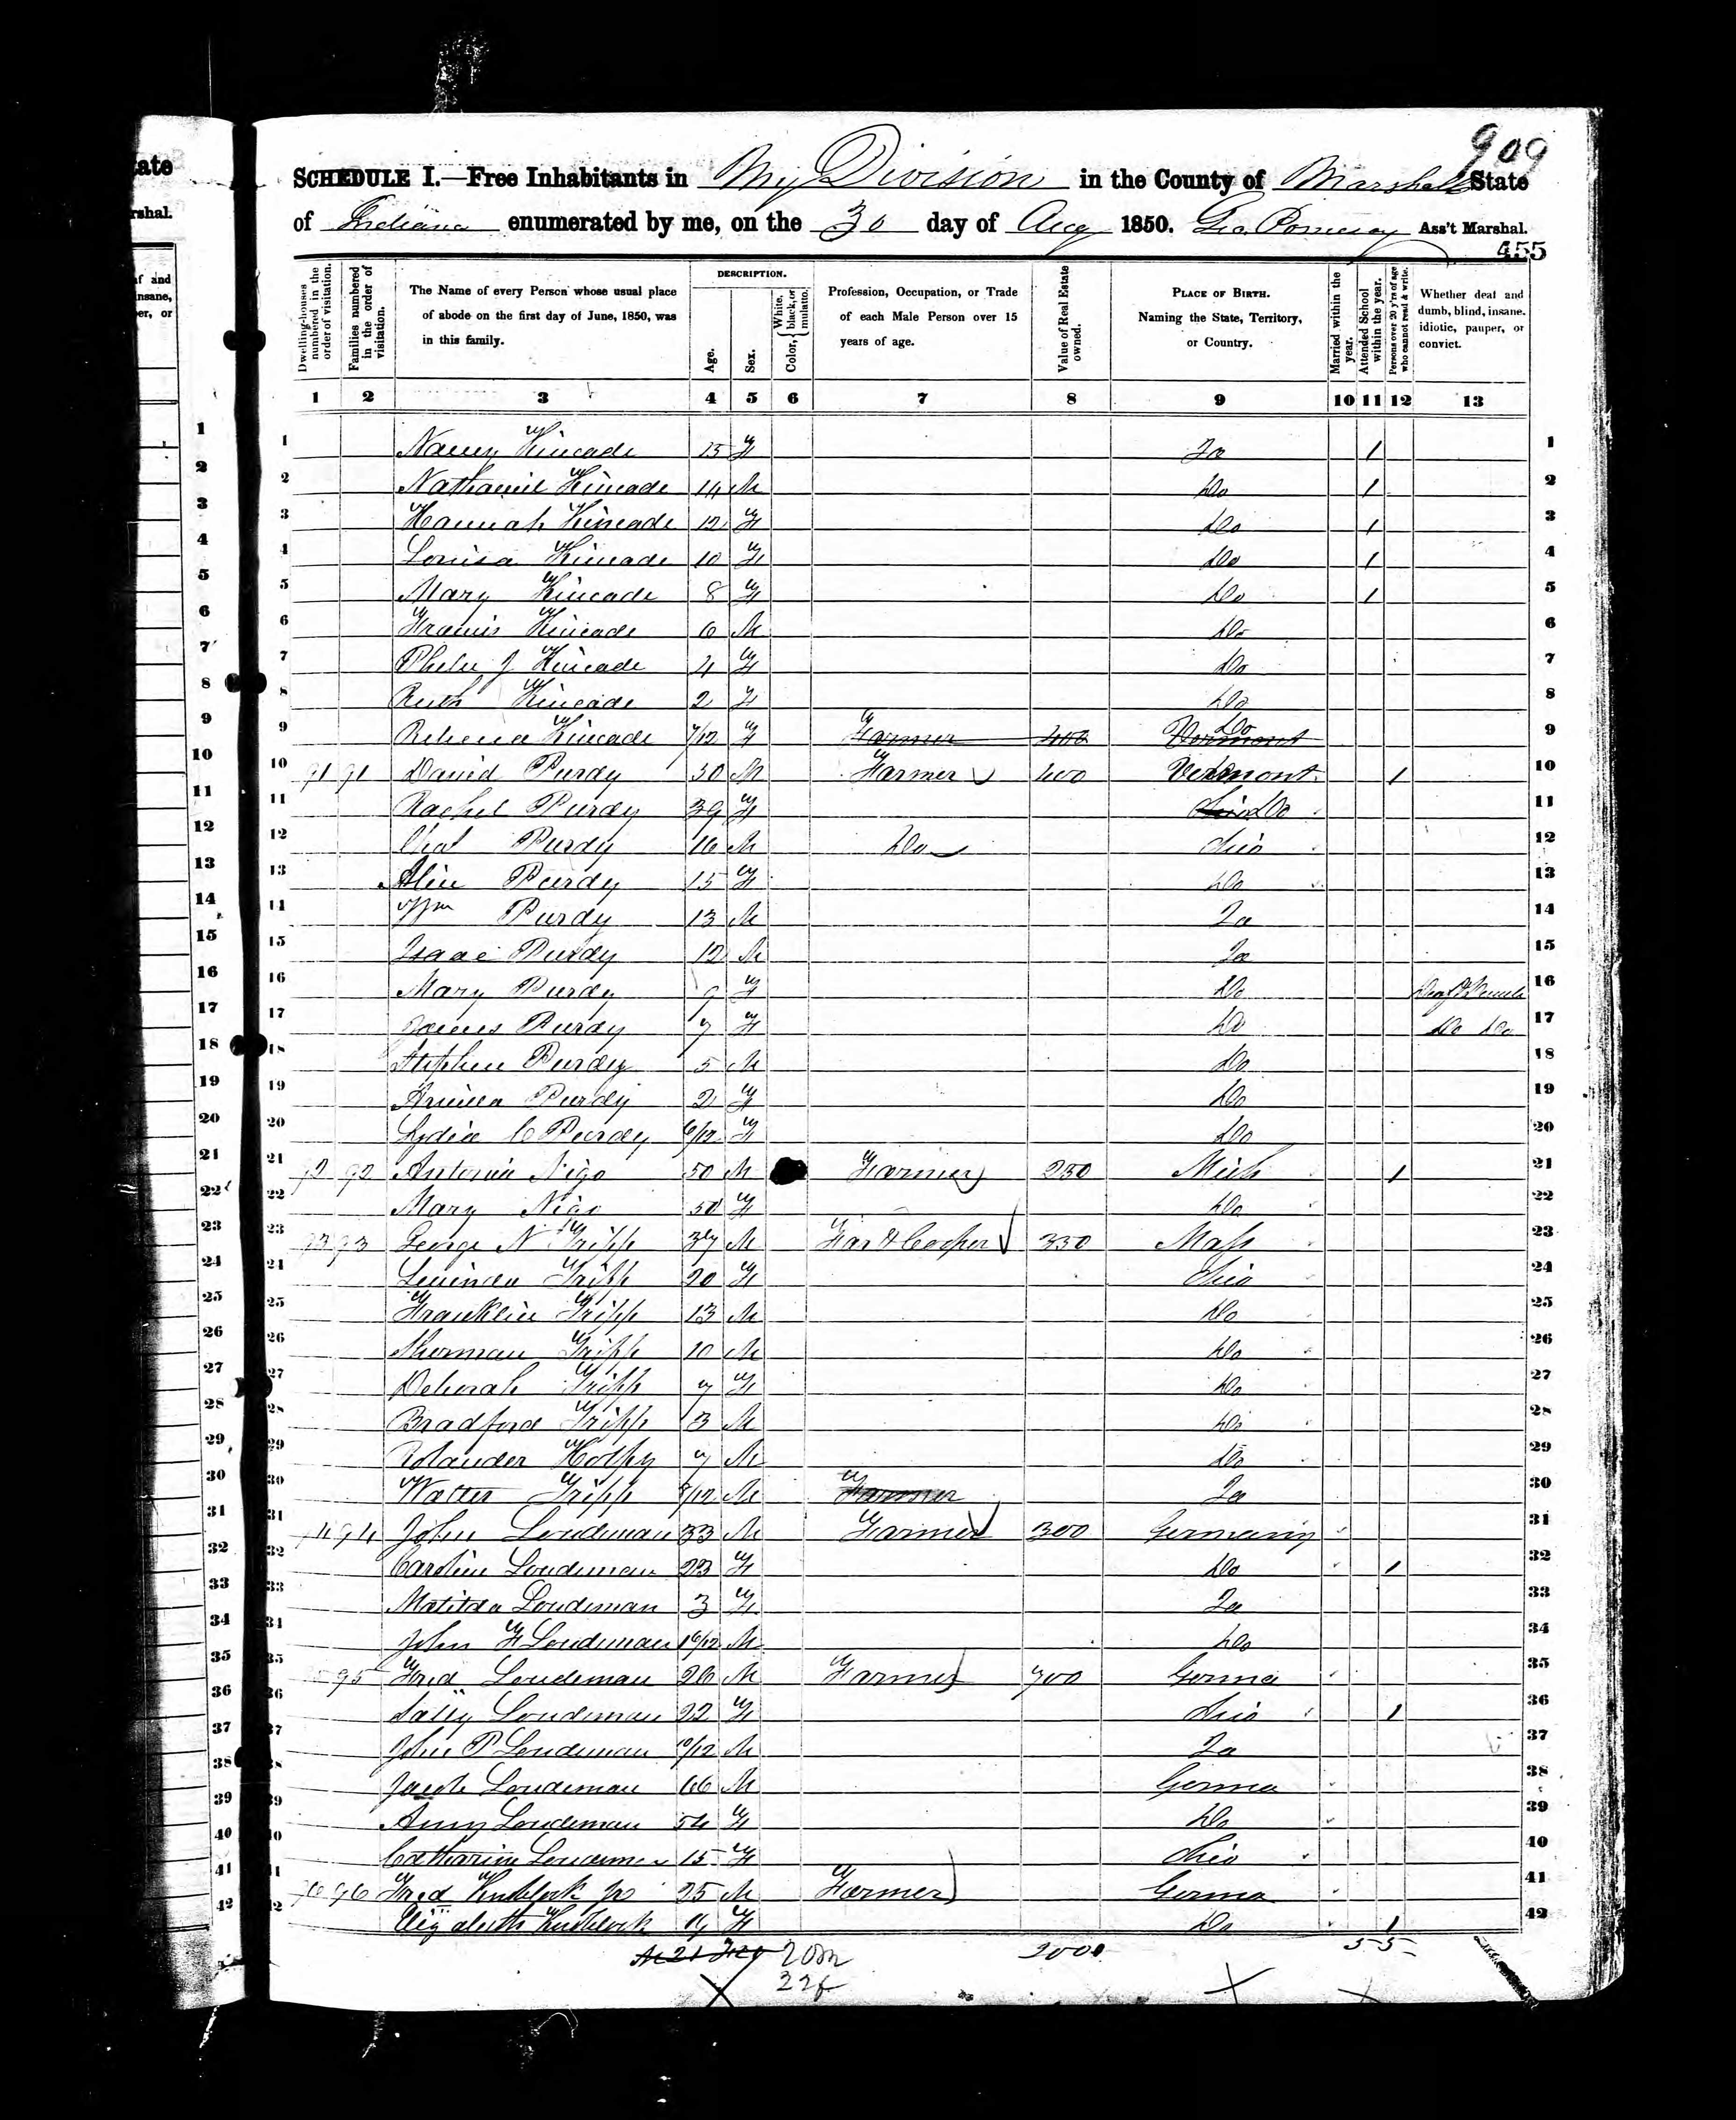 ate
rshal.
f and
nsane,
er, or
909
SCHEDULE I.—Free Inhabitants in My Division in the County of Marshall State
of Indiana enumerated by me, on the 30 day of Aug 1850. Geo. Pomeroy Ass't Marshal.
455
Dwelling-houses numbered in the order of visitation.
Families numbered in the order of visitation.
The Name of every Person whose usual place of abode on the first day of June, 1850, was in this family.
DESCRIPTION.
Age.
Sex.
Color, { White, black, or mulatto.
Profession, Occupation, or Trade of each Male Person over 15 years of age.
Value of Real Estate owned.
PLACE OF BIRTH. Naming the State, Territory, or Country.
Married within the year.
Attended School within the year.
Persons over 20 y'rs of age who cannot read & write.
Whether deaf and dumb, blind, insane, idiotic, pauper, or convict.
1 2 3 4 5 6 7 8 9 10 11 12 13
1 Nancy Kincade 15 F Ia 1 1
2 Nathaniel Kincade 14 M Do 1 2
3 Hannah Kincade 12 F Do 1 3
4 Louisa Kincade 10 F Do 1 4
5 Mary Kincade 8 F Do 1 5
6 Francis Kincade 6 M Do 6
7 Phebe J Kincade 4 F Do 7
8 Ruth Kincade 2 F Do 8
9 Rebecca Kincade 7/12 F Farmer 400 Vermont Do 9
10 91 91 David Purdy 50 M Farmer 400 Vermont 1 10
11 Rachel Purdy 39 F Ohio Do 11
12 Purdy 16 M Do Ohio 12
13 Purdy 15 F Do 13
14 Wm Purdy 13 M Ia 14
15 Isaac Purdy 12 M Ia 15
16 Mary Purdy 9 F Do Deaf & Dumb 16
17 Purdy 7 F Do Do Do 17
18 Stephen Purdy 5 M Do 18
19 Purdy 2 F Do 19
20 Lydia C Purdy 6/12 F Do 20
21 92 92 Nigo 50 M Farmer 250 Mich 1 21
22 Mary Nigo 50 F Do 22
23 93 93 George N Tripp 37 M Far & Cooper 350 Mass 23
24 Tripp 20 F Ohio 24
25 Franklin Tripp 13 M Do 25
26 Sherman Tripp 10 M Do 26
27 Deborah Tripp 7 F Do 27
28 Bradford Tripp 3 M Do 28
29 7 M Do 29
30 Walter Tripp M Farmer Ia 30
31 94 94 John Loudeman 33 M Farmer 300 Germany 31
32 Caroline Loudeman 23 F Do 1 32
33 Matilda Loudeman 3 F Ia 33
34 John F Loudeman M Do 34
35 95 Fred Loudeman 26 M Farmer 700 Germa 35
36 Sally Loudeman 22 F Ohio 1 36
37 John P Loudeman 10/12 M Ia 37
38 Jacob Loudeman 66 M Germa 38
39 Loudeman 54 F Do 39
40 Catharine Loudeman 15 F Ohio 40
41 96 96 Fred Knoblock Jr 25 M Farmer Germa 41
42 Elizabeth Knoblock 19 F Do 1 42
M 21 20m 2000 5 5
22f